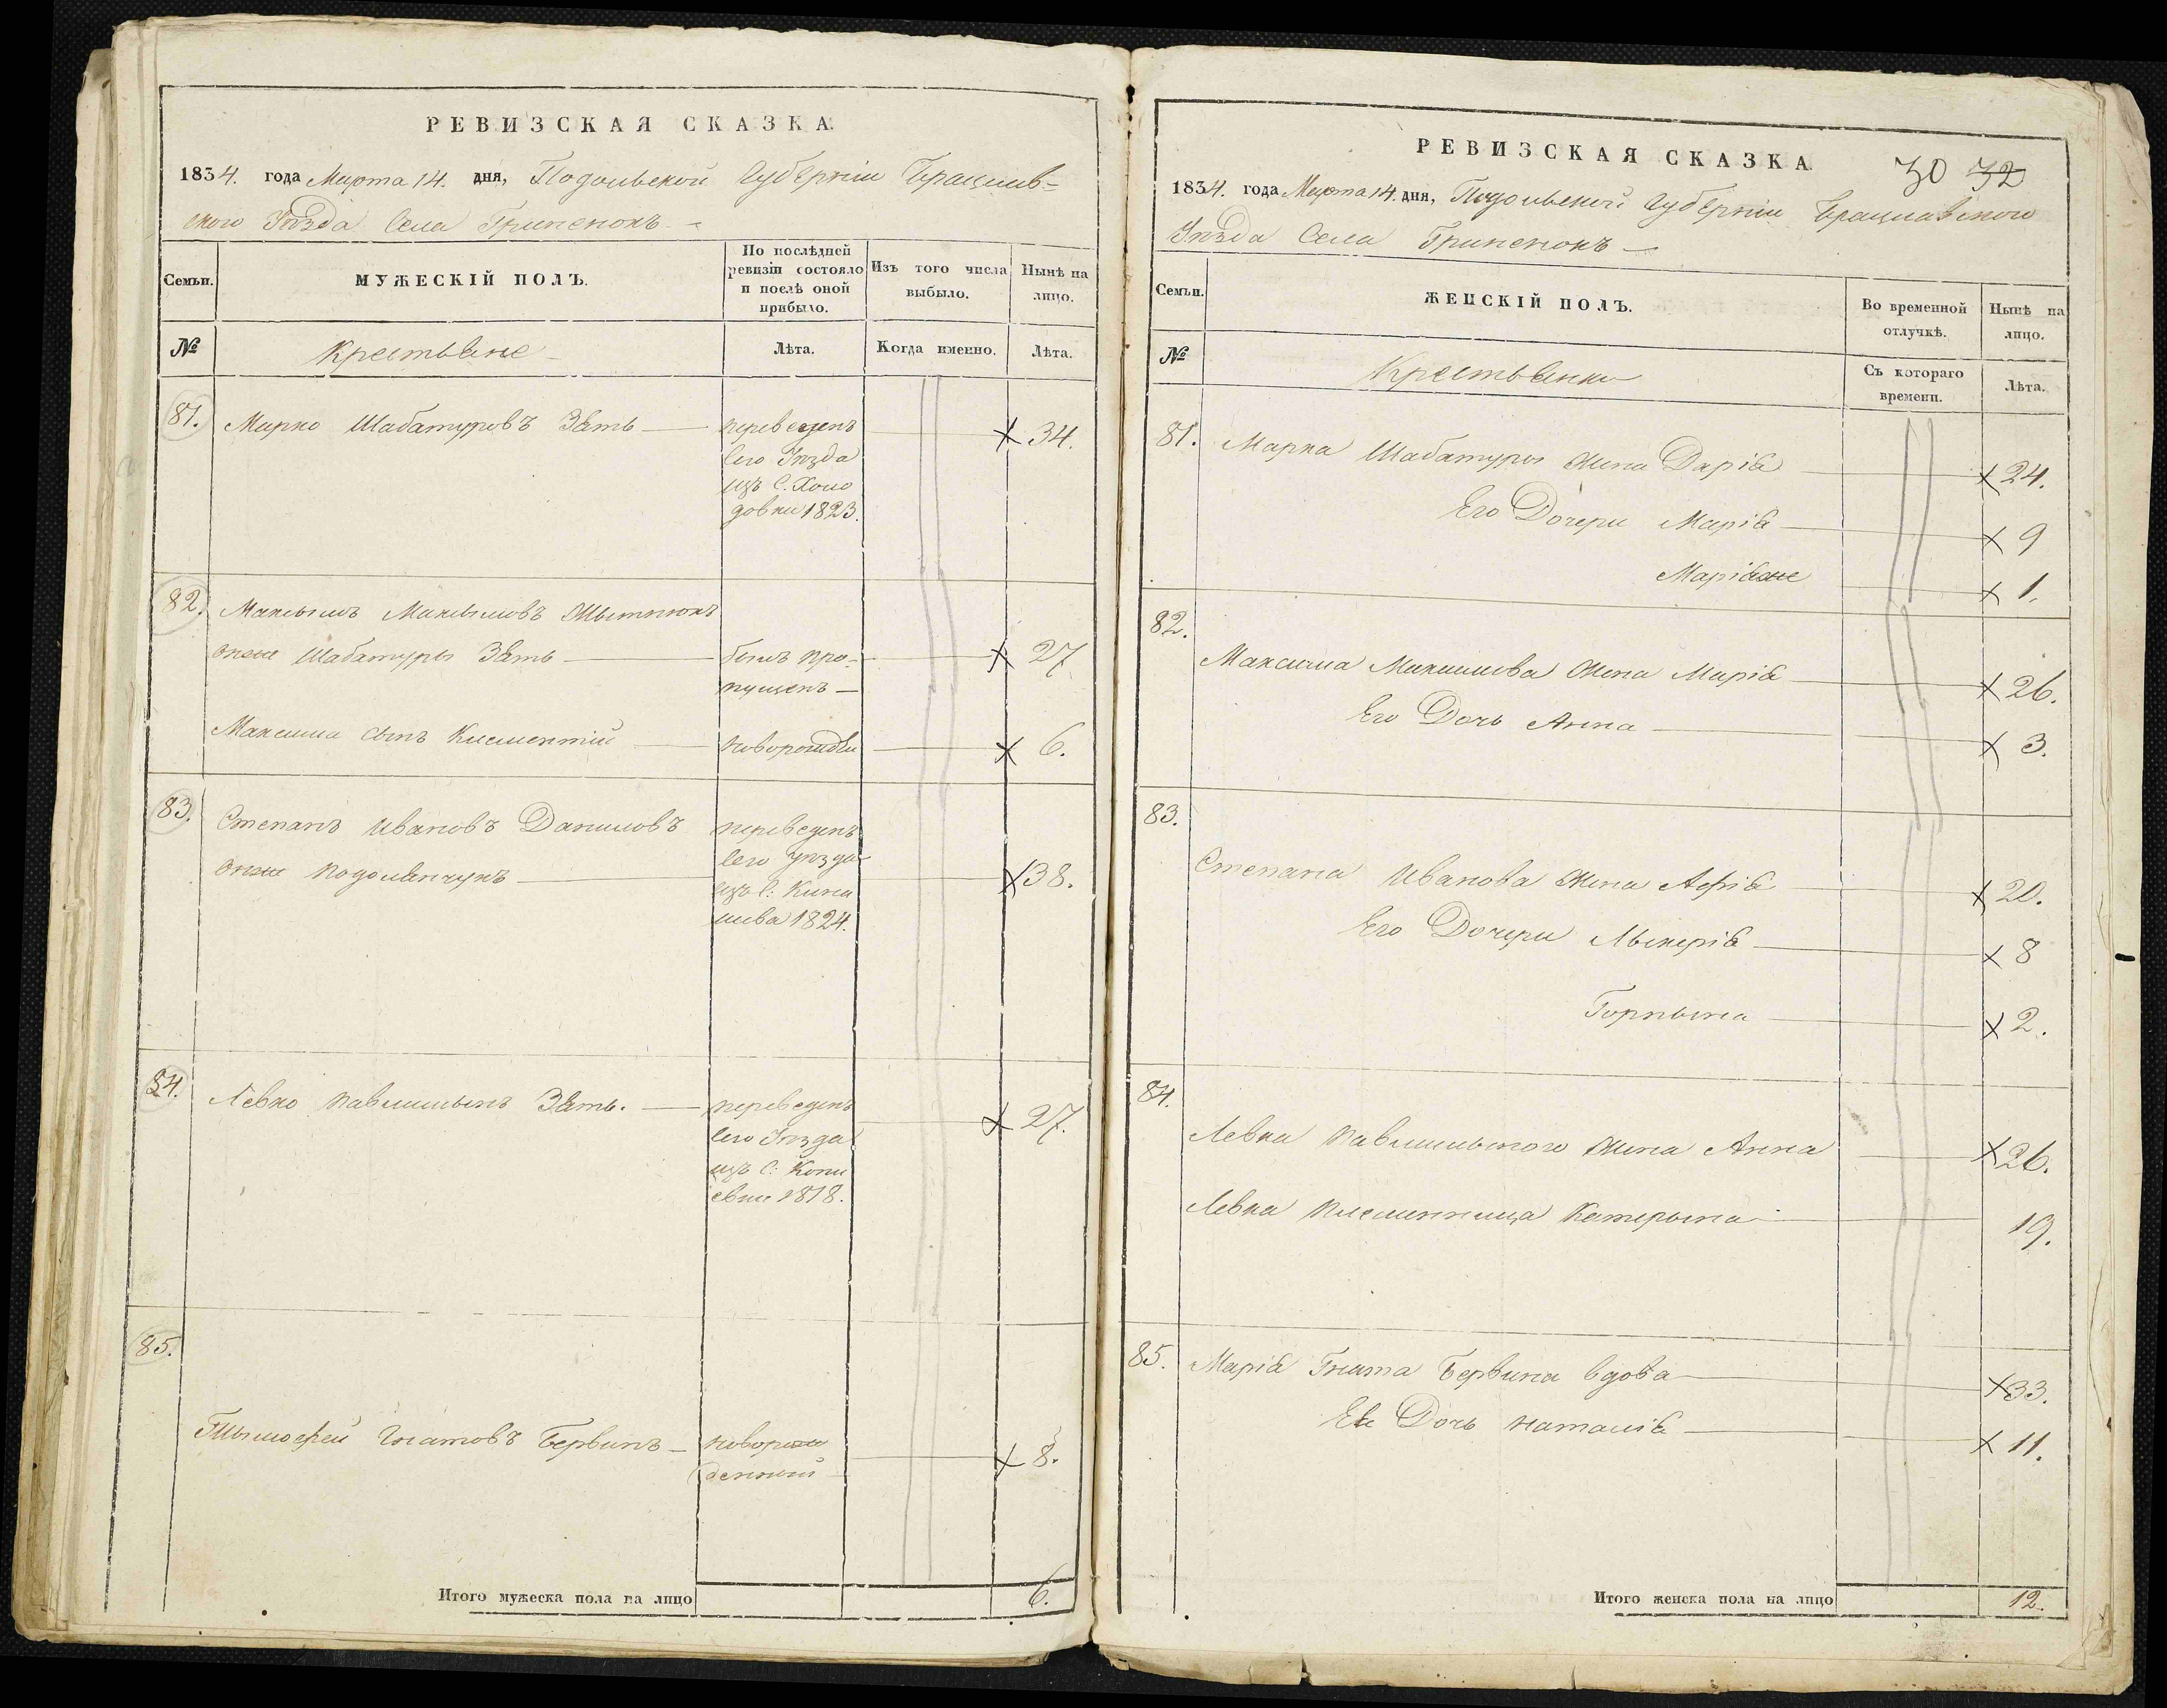 РЕВИЗСКАЯ СКАЗКА
1834. года Марта 14. дня, Подольской Губерніи Брацлав-
ского Уѣзда Села Грипенокъ
Семьи.
МУЖЕСКІЙ ПОЛЪ.
По послѣдней ревизіи состояло и послѣ оной прибыло.
Изъ того числа выбыло.
Нынѣ на лицо.
№
Крестьяне
Лѣта.
Когда именно.
Лѣта.
81. Марко Шабатуровъ Зять переведенъ 34.
сего Уѣзда
изъ С. Холо
довки 1823.
82. Максымъ Максымовъ
онже Шабатуры Зять былъ про- 27
пущенъ
Максима сынъ Климентій новорожден 6.
83. Степанъ Ивановъ Даниловъ переведенъ
онже Подолянчукъ сего уѣзда 38.
изъ С.
1824.
84. Левко Зять. переведенъ 27.
сего Уѣзда
изъ С: Копи
евки 1818.
85.
Тымофей Гнатовъ Бервинъ новорож 8.
денный
Итого мужеска пола на лицо 6.
РЕВИЗСКАЯ СКАЗКА
30 32
1834. года Марта 14. дня, Подольской Губерніи Брацлавского
Уѣзда Села Грипенокъ
Семьи.
ЖЕНСКІЙ ПОЛЪ.
Во временной отлучкѣ.
Нынѣ на лицо.
№
Крестьянки
Съ котораго времени.
Лѣта.
81. Марка Шабатуры жена Дарія 24.
Его Дочери Марія 9
Маріяна 1.
82.
Максима Максимова жена Марія 26.
Его Дочь Анна 3.
83.
Степана Иванова жена 20.
Его Дочери Лыкерія 8
Горпына 2.
84.
Левка жена Анна 26.
Левка племянница Катерына 19.
85. Марія Гната Бервина вдова 33.
Ея Дочь Наталія 11.
Итого женска пола на лицо 12.